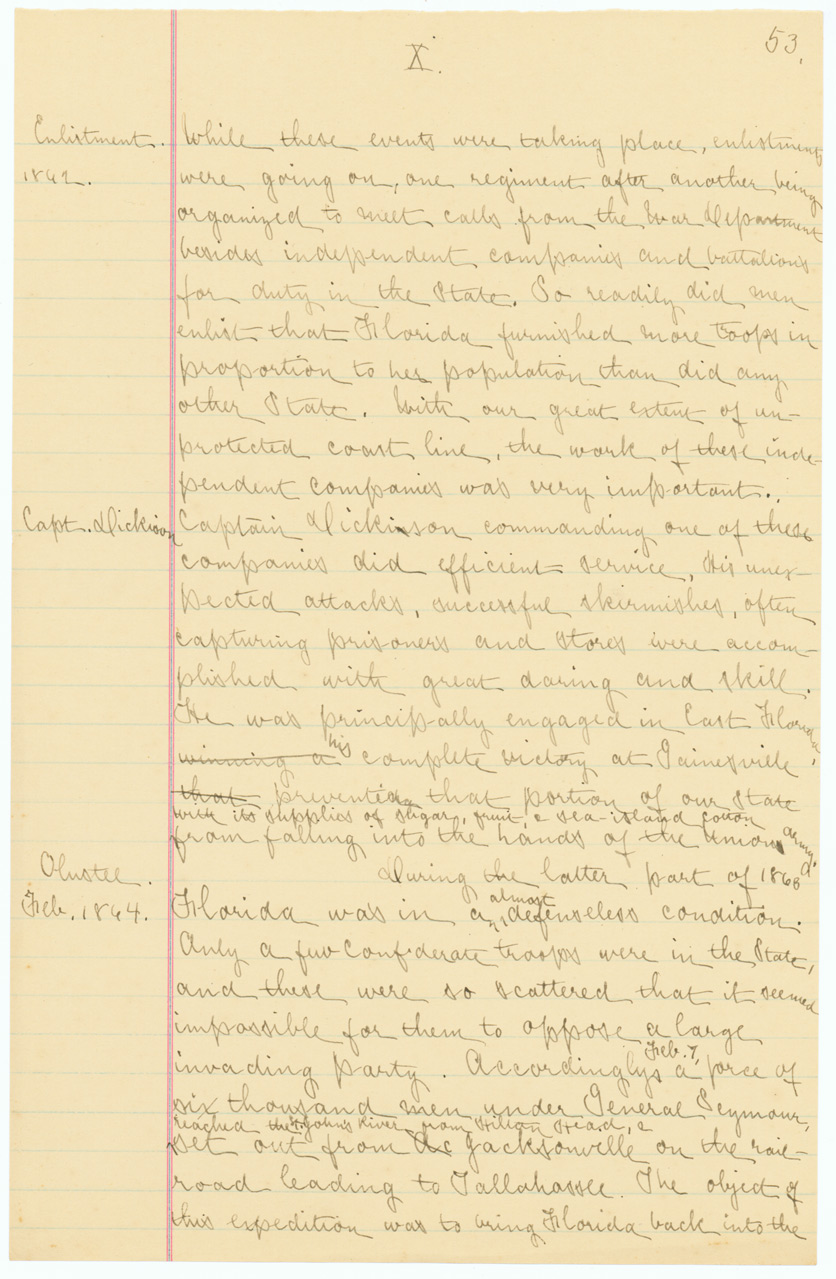 53.
X.
Enlistment.
1862.
While these events were taking place, enlistments
were going on, one regiment after another being
organized to meet calls from the War Department
besides independent companies and battalions
for duty in the State. So readily did men
enlist that Florida furnished more troops in
proportion to her population than did any
other State. With our great extent of un-
protected coast line, the work of these inde-
pendent companies was very important.
Capt. Dickison
Captain Dickinson commanding one of these
companies did efficient service. His unex-
pected attacks, successful skirmishes, often
capturing prisoners and stores were accom-
plished with great daring and skill.
He was principally engaged in East Florida,
winning a his complete victory at Gainesville
that prevented that portion of our State
with its supplies of sugar, fruit, & sea-island cotton
from falling into the hands of the Union army.
Olustee.
Feb. 1864.
During the latter part of 1863
Florida was in a almost defenseless condition.
Only a few Confederate troops were in the State,
and these were so scattered that it seemed
impossible for them to oppose a large
invading party. Accordingly Feb. 7, a force of
six thousand men under General Seymour,
reached the St. Johns River from Hilton Head, &
set out from Jacksonville on the rail-
road leading to Tallahassee. The object of
this expedition was to bring Florida back into the